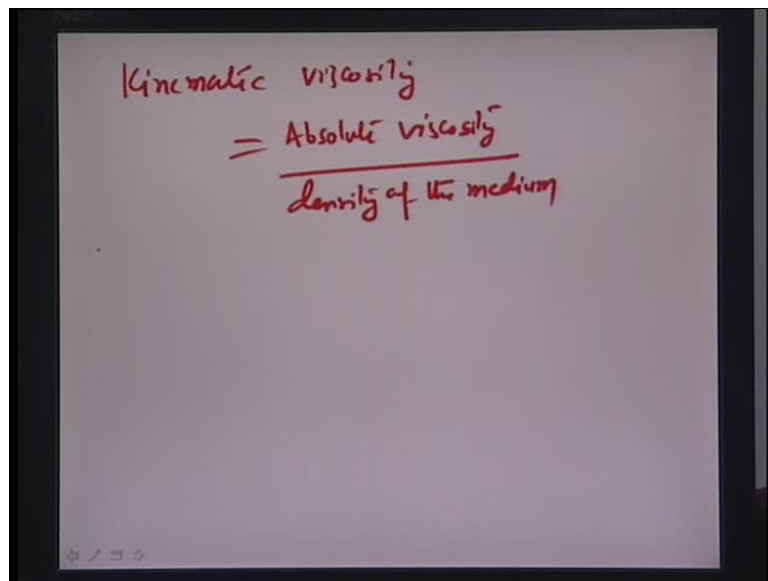 Kinematic viscosity
= Absolute viscosity
density of the medium